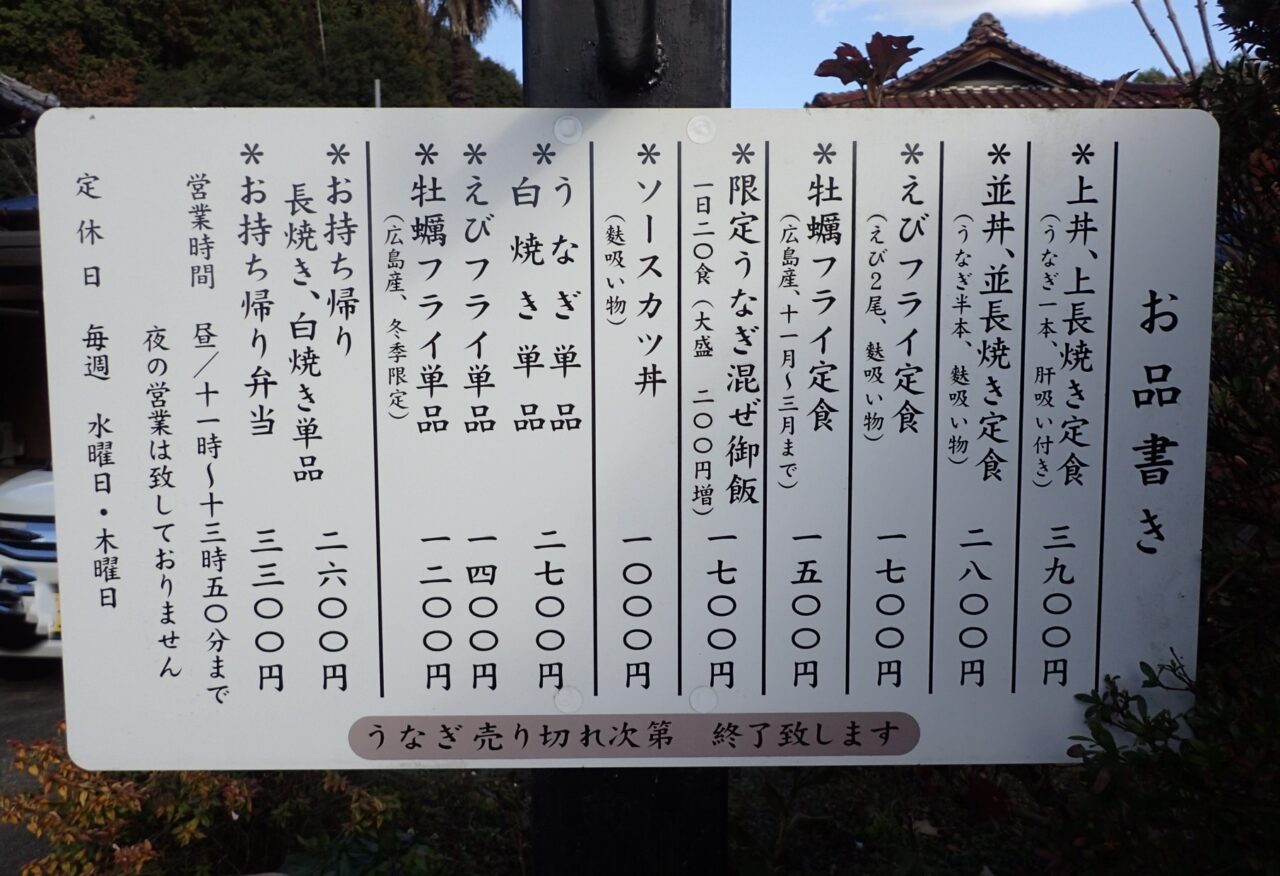 お品書き
＊上丼、上長焼き定食 三九〇〇円
（うなぎ一本、肝吸い付き）
＊並丼、並長焼き定食 二八〇〇円
（うなぎ半本、麩吸い物）
＊えびフライ定食 一七〇〇円
（えび２尾、麩吸い物）
＊牡蠣フライ定食 一五〇〇円
（広島産、十一月～三月まで）
＊限定うなぎ混ぜ御飯 一七〇〇円
一日二〇食（大盛 二〇〇円増）
＊ソースカツ丼 一〇〇〇円
（麩吸い物）
＊うなぎ単品 二七〇〇円
白焼き単品
＊えびフライ単品 一四〇〇円
＊牡蠣フライ単品 一二〇〇円
（広島産、冬季限定）
＊お持ち帰り 二六〇〇円
長焼き、白焼き単品
＊お持ち帰り弁当 三三〇〇円
営業時間 昼／十一時～十三時五〇分まで
夜の営業は致しておりません
定休日 毎週 水曜日・木曜日
うなぎ売り切れ次第 終了致します